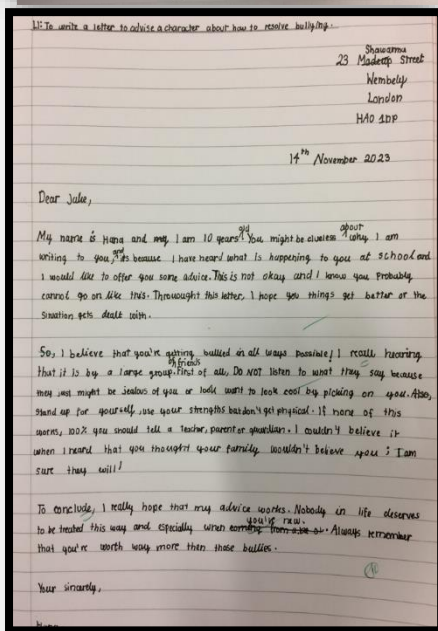 LI: To write a letter to advise a character about how to resolve bullying.
Shawarma
23 Madeup Street
Wembely
London
HA0 1DP
14th November 2023
Dear Jake,
My name is Hana and my I am 10 years old. You might be clueless about why I am
writing to you, and its because I have heard what is happening to you at school and
I would like to offer you some advice. This is not okay and I know you Probably
cannot go on like this. Throwought this letter, I hope you things get better or the
situation gets dealt with.
So, I believe that you're getting bullied in all ways possible! I recall hearing
that it is by a large group of friends. First of all, Do NOT listen to what they say because
they just might be jealous of you or look want to look cool by picking on you. Also,
stand up for yourself, use your strengths but don't get physical. If none of this
works, 100% you should tell a teacher, parent or guardian. I couldn't believe it
when I heard that you thought your family wouldn't believe you; I am
sure they will!
To conclude, I really hope that my advice workes. Nobody in life deserves
to be treated this way and especially when you're raw. Always remember
that you're worth way more then those bullies.
Your sincerely,